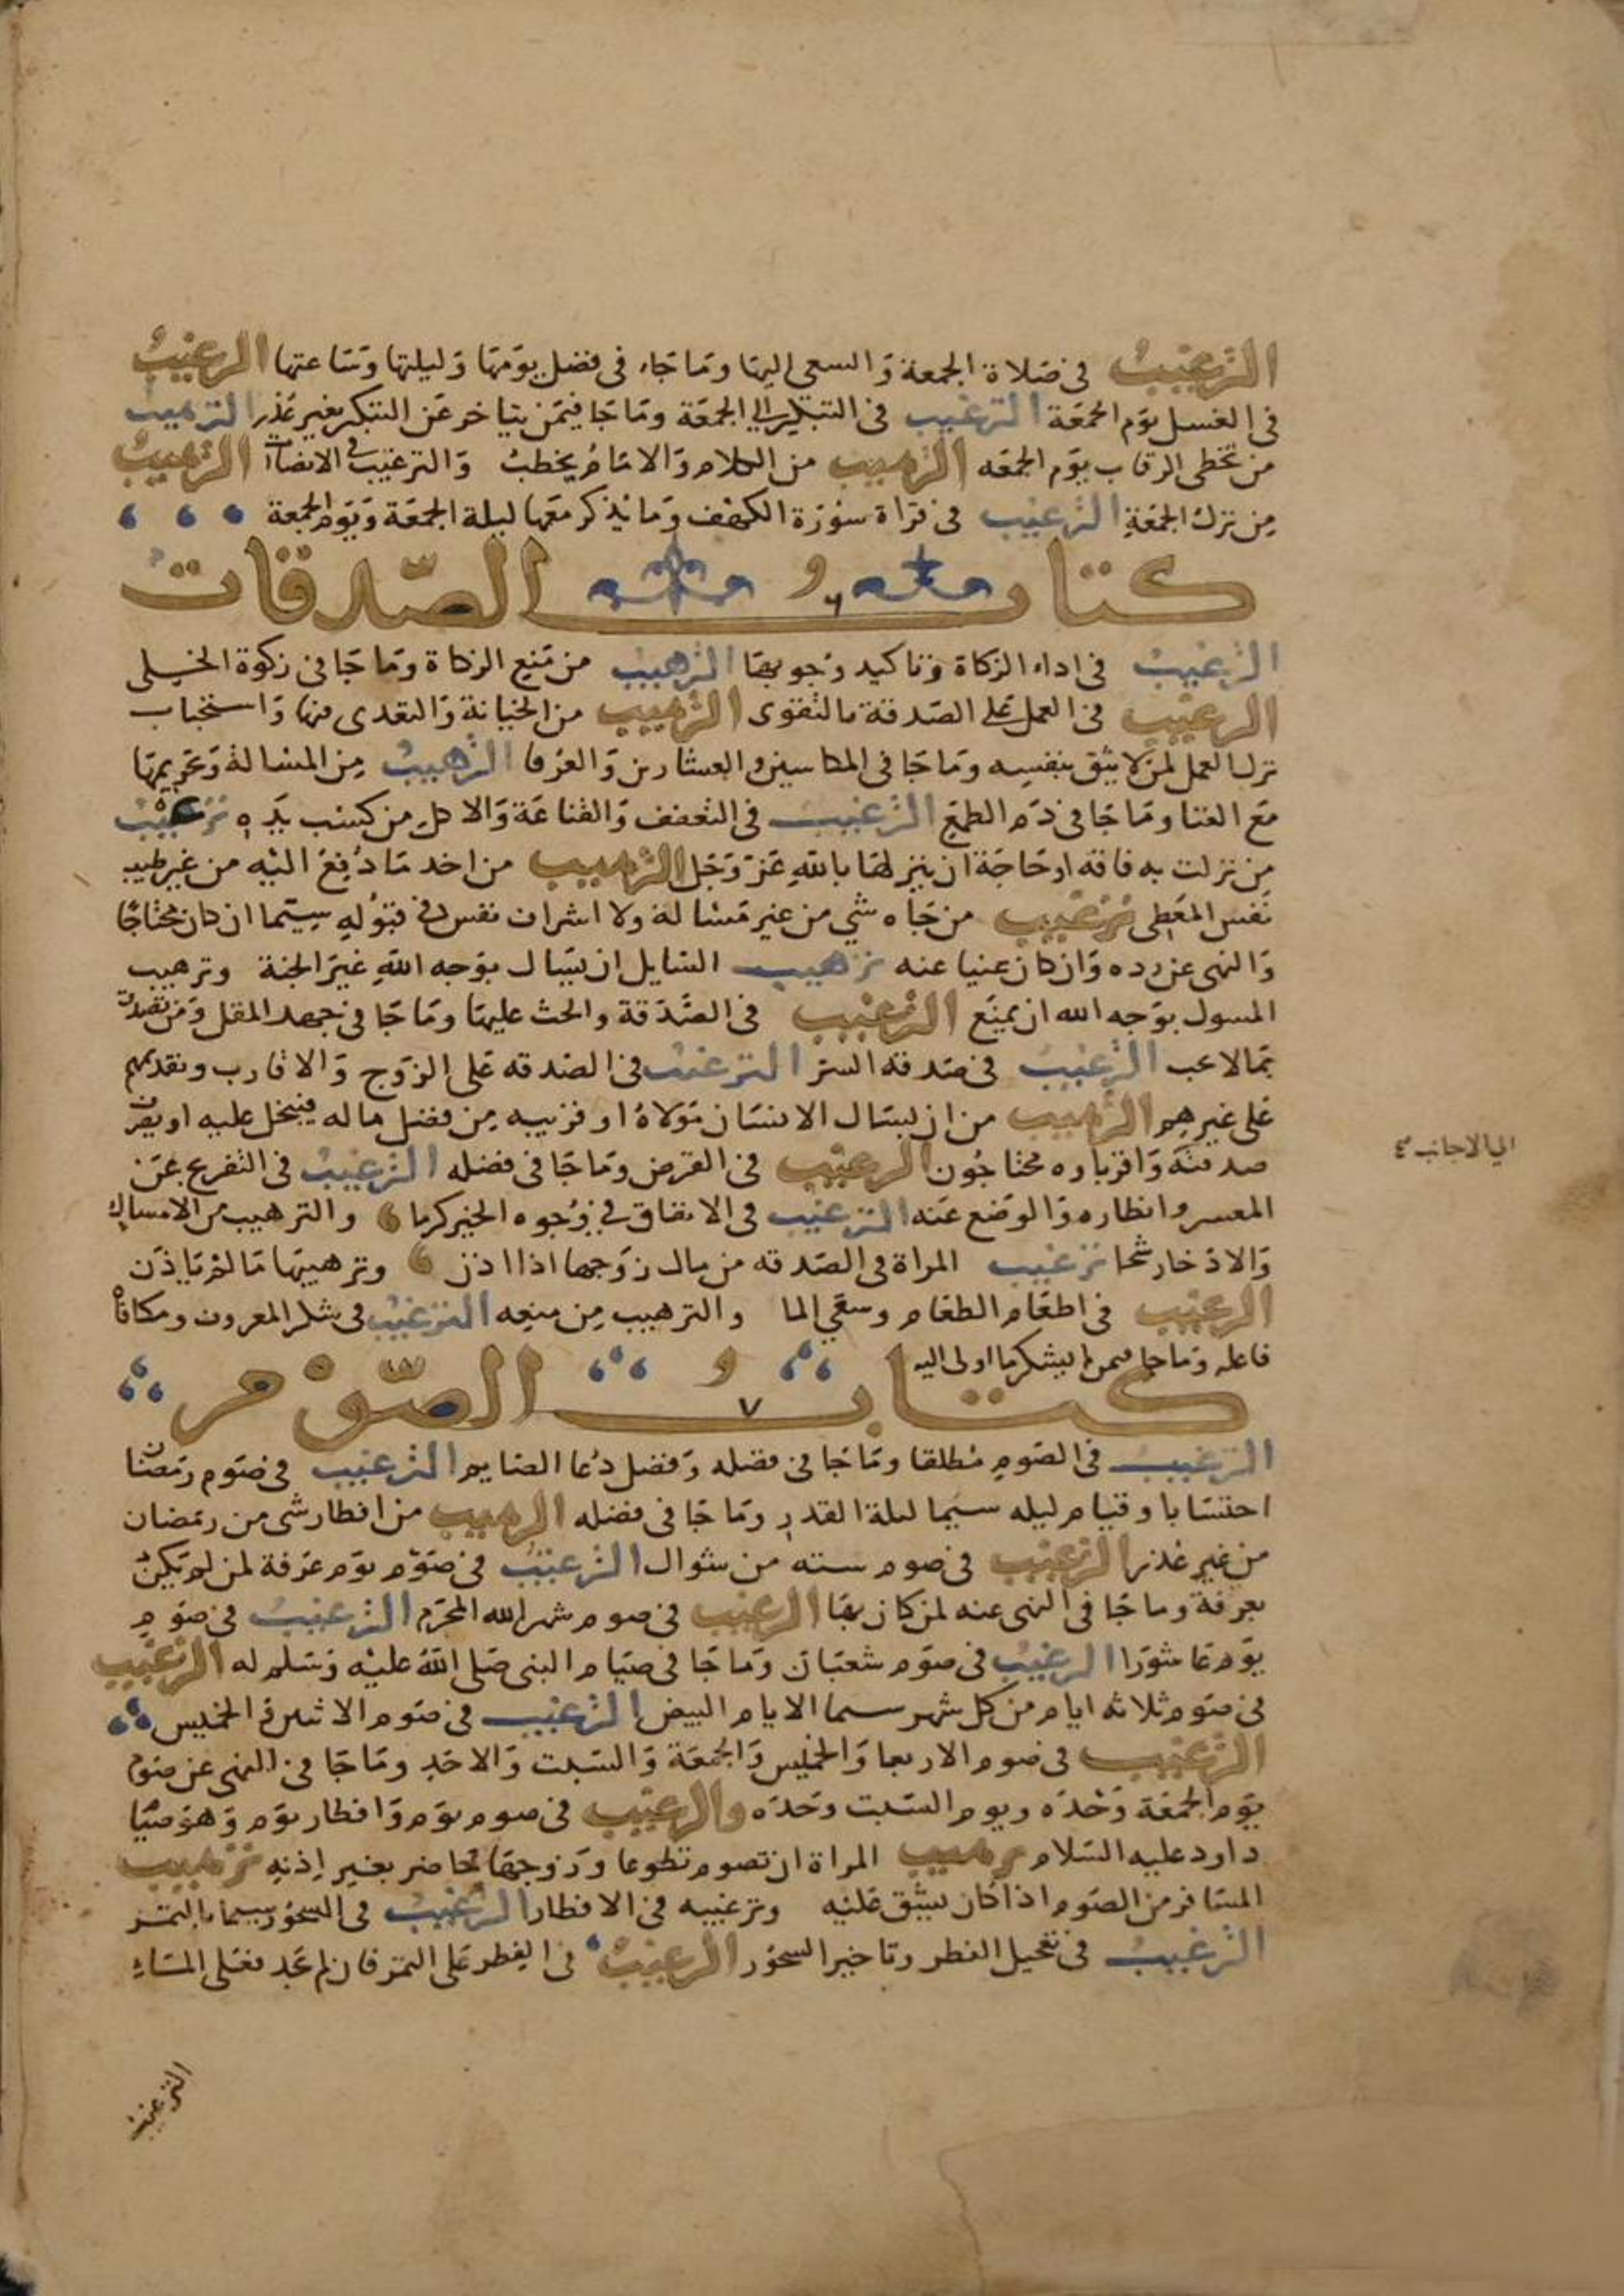 الترغيبُ في صَلاة الجمعة وَالسعي اليهَا ومَا جَاء في فضل يوَمهَا وَليلتها وَسَاعتها الترغيبُ
في الغسل يوَم الجمعَة الترغيب في التبكير الي الجمعَة ومَا جَا فيمَن يتاخر عَن التبكير بغير عَذر الترهيب
من تخطى الرقاب يوَم الجمعَه الترهيب من الكلام وَالامَامُ يخطبُ وَالترغيب في الانصات الترهيبُ
مِن ترك الجمَعةِ الترغيب في قراة سوُرَة الكهف وَمَا يُذكر معَها ليلة الجمَعَة وَيَوم الجمعة
كتابُ الصّدقات
٦
الترغيبُ في اداء الزكاة وَتاكيد وُجوبهَا الترهيب من مَنع الزكاة ومَا جَا في زكوة الحلى
الترغيب في العمل عَلى الصَدقة بالتقوى الترهيب من الخيانة وَالتعَدى فيها وَاستحباب
ترك العمل لمن لا يثق بنفسه ومَا جَا في المكاسين والعشارين وَالعرفا الترهيبُ مِن المسَالة وَتحريمهَا
مَع الغنا ومَا جَا في ذَم الطمَع الترغيب في التعَفف وَالقناعَة وَالاكل من كسْب يَدِه ترغيْبُ
مِن نزلت به فاقه او حَاجَة ان ينزلهَا باللهِ عَزَّ وَجَل الترهيب من اخد مَا دُفِعَ اليْه من غير طيب
نفس المعَطى ترغيب من جَاه شي من غير مَسَالة ولا اشراف نفس في قبوُلهِ سِيَّما ان كان محتاجًا
وَالنهى عن رده وَان كان غنيا عنه ترهيب السَايل ان يسَال بوَجه اللهِ غيَر الجنة وترهيب
المسول بوَجه الله ان يمنَع الترغيب في الصَدَقة والحث عليهَا ومَا جَا في جهد المقل وَمَن تصَدق
بمَا لا يحب الترغيب في صَدقه السرّ الترغيب في الصَدقه عَلى الزوَج وَالاقارب وتقديمهم
على غيرهِم الترهيب من ان يسَال الانسَان مَولاهُ او قريبه مِن فضل ماله فيبخل عليه او يصَرف
صدقته وَاقرباوه محتاجُون الترغيب في القرض ومَا جَا في فضله الترغيبُ في التفريج عَن
الي الاجانب
المعسر وانظاره وَالوَضع عَنه الترغيب في الانفاق في وُجوه الخير كرما والترهيب من الامساك
وَالادخار شحا ترغيب المراة في الصَدقه من مال زوَجها اذا اذن وترهيبهَا مَا لم يَاذَن
الترغيب في اطعَام الطعَام وسقي الما والترهيب مِن منعِه الترغيبُ في شكر المعروف ومكافاة
فاعله ومَا جا فيمن لم يشكر ما اولى اليه
كتابُ الصّوْم
٧
الترغيبُ في الصَوم مُطلقا ومَا جَا في فضله وَفضل دُعا الصَايم الترغيب في صَوم رمَضان
احتسَابا وقيام ليله سيَما ليلة القدر ومَا جَا في فضله الترهيب من افطار شى من رمَضان
من غير عُذر الترغيب في صوم سته من شوال الترغيبُ في صَوم يوَم عَرَفة لمن لم يكن
بعرفة وما جَا في النهى عنه لمن كان بهَا الترغيب في صوم شهر الله المحَرم الترغيبُ في صَوم
يوَم عَاشوَرا الترغيبُ في صَوم شعبَان ومَا جَا في صيَام النبى صَلى اللهُ عليْه وَسَلم له الترغيب
في صَوم ثلاثه ايام من كل شهر سيما الايام البيض الترغيب في صَوم الاثنين والخميس
الترغيب في صَوم الاربعا وَالخميس وَالجمعَة وَالسَبت وَالاحَد ومَا جَا في النهى عن صَوم
يوَم الجمعَة وَحْدَه ويوم السَبت وَحَدَه والترغيب في صوم يوَم وَافطار يوَم وَهوَ صيَا
داود عليه السَلام ترهيب المراة ان تصوم تطوعا وَزوجهَا حاضر بغير إذنهِ ترهيب
المسَافر من الصَوم اذا كان يشق عَليْه وترغيبه في الافطار الترغيبُ في السحُور سيما بالتمر
الترغيبُ في تعجيل الفطر وتاخير السحوُر الترغيبُ في الفِطر عَلى التمر فان لم يجَد فعَلى المَاء
الترغيبُ